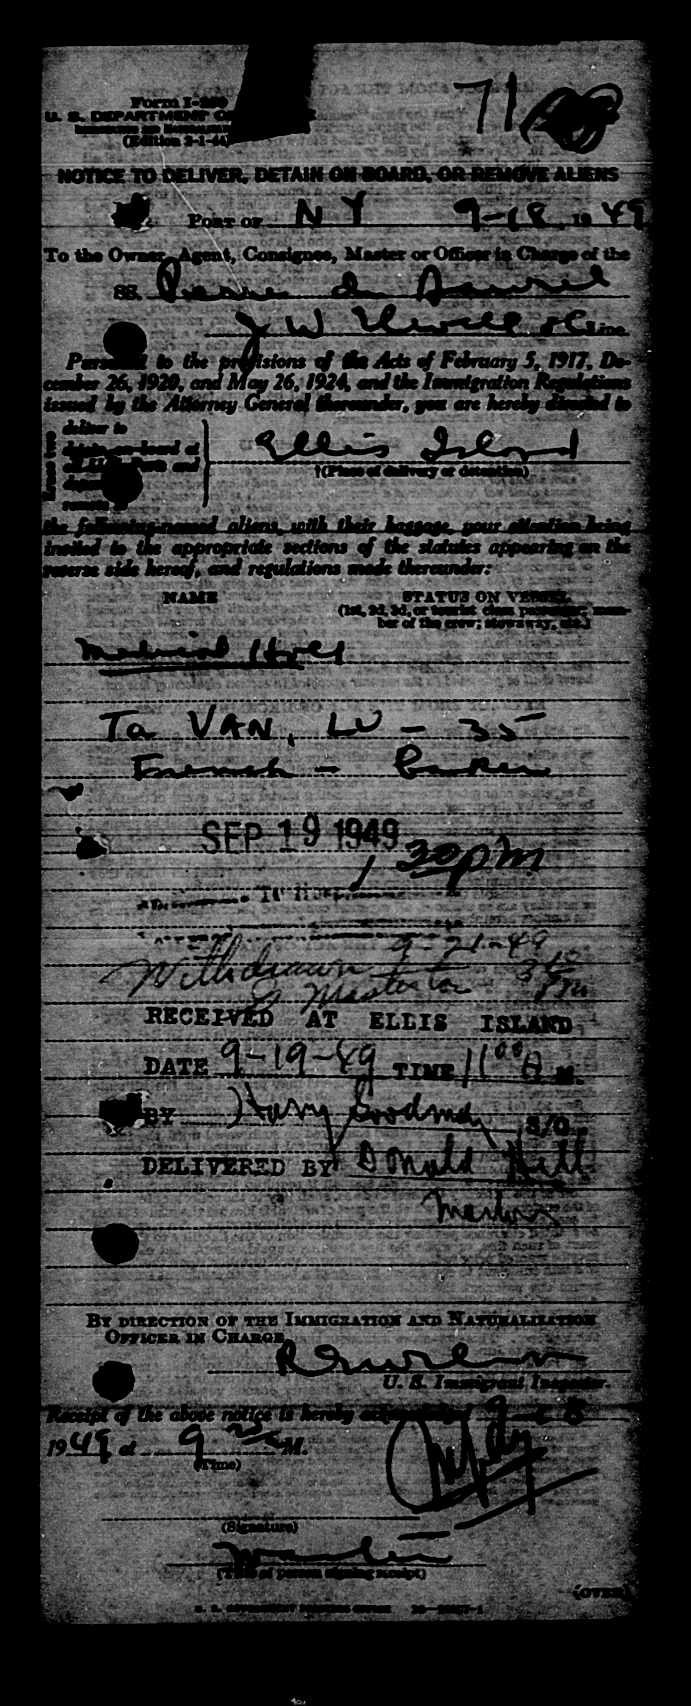 71
Form I-259
U. S. DEPARTMENT OF
(Edition 2-1-44)
NOTICE TO DELIVER, DETAIN ON BOARD, OR REMOVE ALIENS
PORT OF N Y 9-18, 1949
To the Owner, Agent, Consignee, Master or Officer in Charge of the
SS.
J W
Line.
Pursuant to the provisions of the Acts of February 5, 1917, De-
cember 26, 1920, and May 26, 1924, and the Immigration Regulations
issued by the Attorney General thereunder, you are hereby directed to
deliver to
detain on board at
remove
Ellis Island
†(Place of delivery or detention)
the following-named aliens, with their baggage, your attention being
invited to the appropriate sections of the statutes appearing on the
reverse side hereof, and regulations made thereunder:
NAME STATUS ON VESSEL
(1st, 2d, 3d, or tourist class passenger; mem-
ber of the crew; stowaway, etc.)
Medical Hold
Ta VAN, LU - 35
French -
SEP 19 1949
1 30 pm
Withdrawn 9-21-49
RECEIVED AT ELLIS ISLAND
DATE 9-19-49 TIME 11 00 A M.
BY Harry Goodman S/O
DELIVERED BY Donald Hill
BY DIRECTION OF THE IMMIGRATION AND NATURALIZATION
OFFICER IN CHARGE
U. S. Immigrant Inspector.
Receipt of the above notice is hereby acknowledged
1949 at 9 M.
(Time)
(Signature)
(Title of person signing receipt)
(OVER)